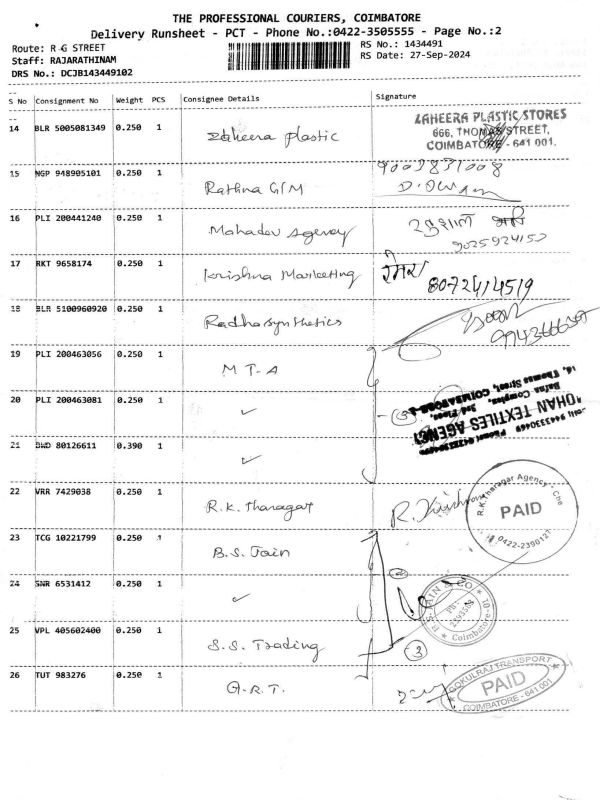 THE PROFESSIONAL COURIERS, COIMBATORE
Delivery Runsheet - PCT - Phone No.:0422-3505555 - Page No.:2
Route: R G STREET
RS No.: 1434491
Staff: RAJARATHINAM
RS Date: 27-Sep-2024
DRS No.: DCJB143449102
S No Consignment No Weight PCS Consignee Details Signature
14 BLR 5005081349 0.250 1 Zaheera plastic
ZAHEERA PLASTIC STORES
666, THOMAS STREET,
COIMBATORE - 641 001.
15 NGP 948905101 0.250 1 Rathna G/M
16 PLI 200441240 0.250 1 Mahadev Agency
9025924152
17 RKT 9658174 0.250 1 Krishna Marketing
8072414519
18 BLR 5100960920 0.250 1 Radha synthetics
19 PLI 200463056 0.250 1 M T-A
20 PLI 200463081 0.250 1 ✓
MOHAN TEXTILES AGENCY
Bafna Complex, 3rd Floor,
Thomas Street, COIMBATORE-1
21 BWD 80126611 0.390 1 ✓
22 VRR 7429038 0.250 1 R.K. Tharagar
R.K.Tharagar Agency - Che
PAID
0422-2390127
23 TCG 10221799 0.250 1 B.S. Jain
24 SNR 6531412 0.250 1 ✓
B.S. JAIN & CO
Coimbatore-01
25 VPL 405602400 0.250 1 S.S. Trading
3
26 TUT 983276 0.250 1 G.R.T.
GOKULRAJ TRANSPORT
PAID
COIMBATORE - 641 001